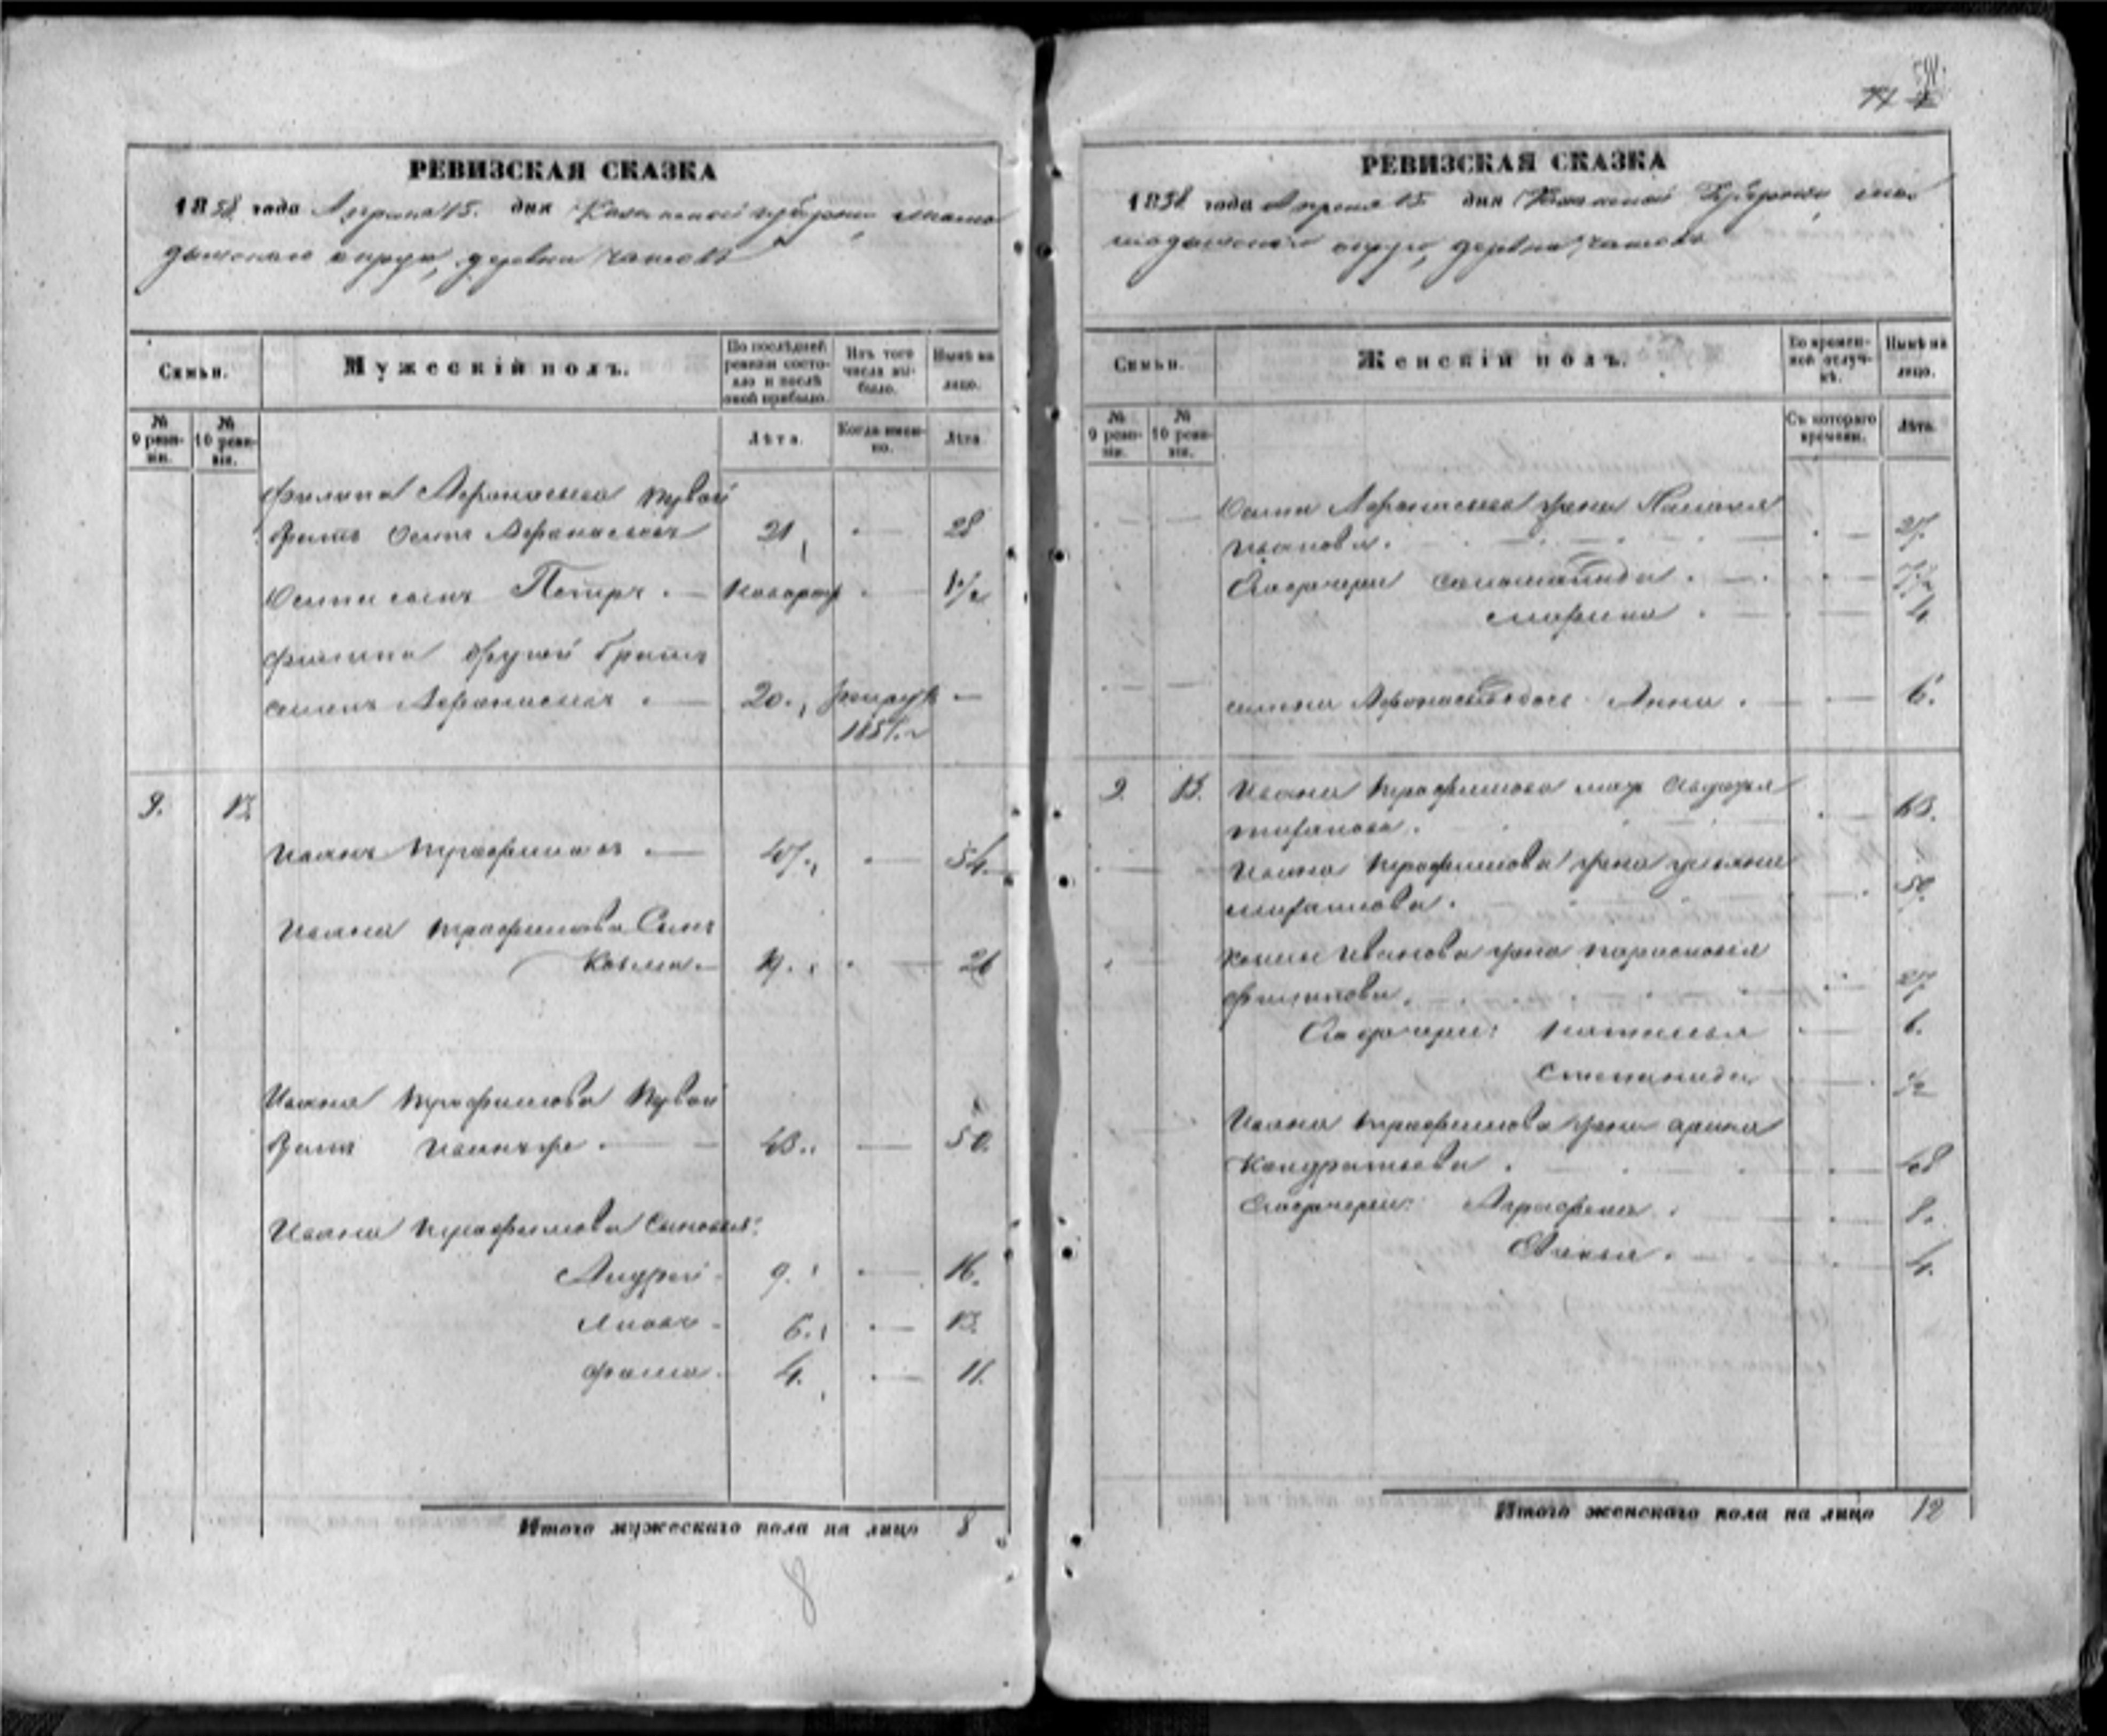 РЕВИЗСКАЯ СКАЗКА
1858 года Апреля 15. дня Казанской губернии, мама
дышскаго округа, деревни
Семьи.
Мужескій полъ.
По послѣдней ревизіи состояло и послѣ оной прибыло.
Изъ того числа выбыло.
Нынѣ на лицо.
№ 9 ревизіи.
№ 10 ревизіи.
Лѣта.
Когда именно.
Лѣта
Филипа Афанасьева первой
братъ Осипъ Афанасьевъ 21 28
Осипа сынъ Петръ . — новорож 1½
Филипа другой братъ
Афанасьевъ . — 20. рекрут —
185
9. 13.
Иванъ Трофимовъ . — 47. 54.
Ивана Трофимова Сынъ
Козма. — 19. 26
Ивана Трофимова первой
братъ Иванъ же . — 43. — 50.
Ивана Трофимова Сыновья:
Андрей 9. 16.
6. 13.
Фома 4. 11.
Итого мужескаго пола на лицо 8
8
РЕВИЗСКАЯ СКАЗКА
1858 года Апреля 15 дня Казанской Губернии, ма
мадышскаго округа, деревни
Семьи.
Женскій полъ.
Во временной отлучкѣ.
Нынѣ на лицо.
№ 9 ревизіи.
№ 10 ревизіи.
Съ котораго времени.
Лѣта.
Осипа Афанасьева жена
Иванова. 27.
Его дочери
Марина 4
Афанасьева дочь Анна . 6.
9. 13. Ивана Трофимова мать Авдотья
63.
Ивана Трофимова жена Ульяна
50.
Козмы Иванова жена Парасковья
Филипова. 27
Его дочери: Наталья 6.
Степанида ½
Ивана Трофимова жена Арина
Кондратьева . 48
Его дочери: Аграфена . 8.
4.
Итого женскаго пола на лицо 12